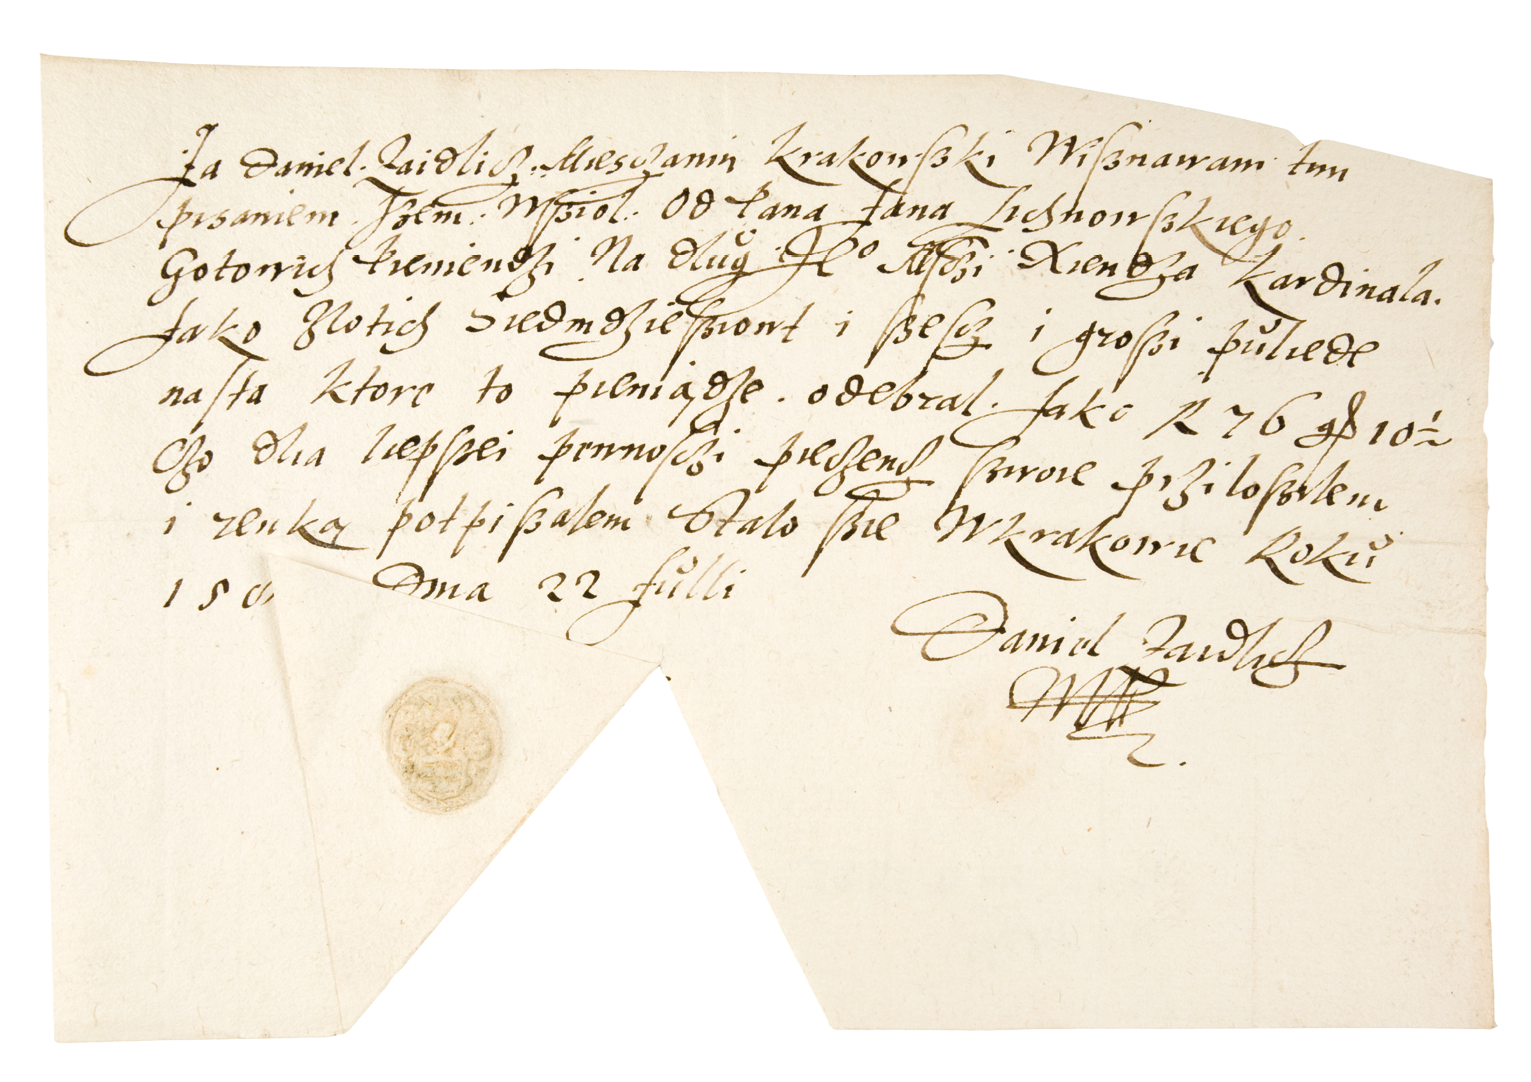 Ja Daniel Zaidlicz Miesczanin krakowsski Wisznawam tim
pisaniem. Jzem. Wsziol. Od Pana Jana Lichnowskiego.
Gotowich Pieniendzi Na dlug Je° Msdzi Xiendza kardinala.
Jako Zlotich Siedmdziesziont i szescz i groszi puliede
nasta ktore to pieniądze. odebral. Jako R 76 gr 10½
Czo dlia liepszei pewnosczi pieczencz szwoie prziloszilem
i renką potpiszalem Stalo szie Wkrakowie Roku
158 Dnia 22 Julli
Daniel Zaidlicz